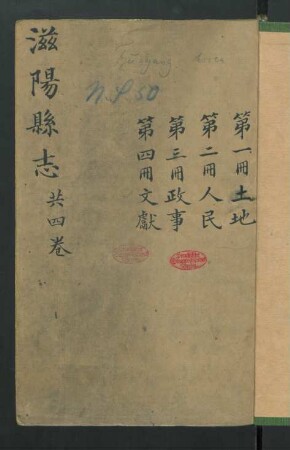 滋陽縣志 共四卷
第一冊土地
第二冊人民
第三冊政事
第四冊文獻
N.S. 50